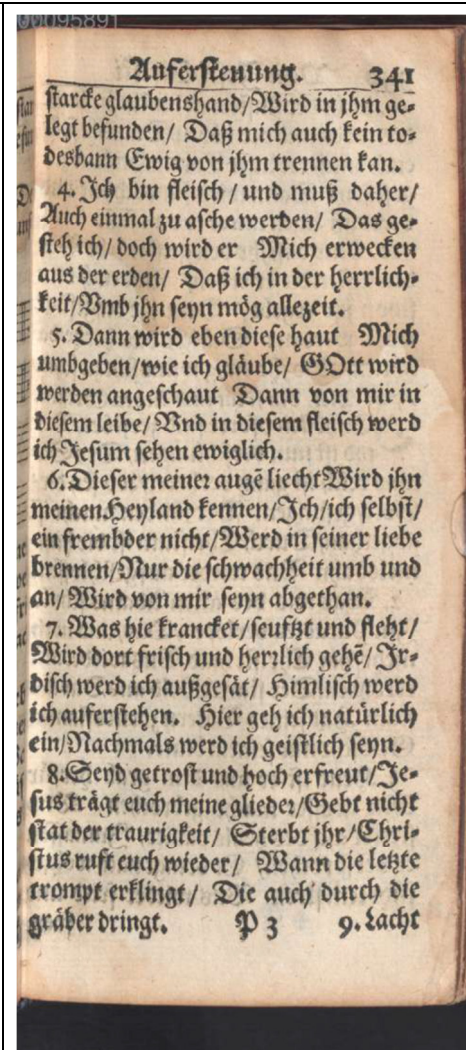 00095891
Auferstenung. 341
starcke glaubenshand/Wird in jhm ge-
legt befunden/ Daß mich auch kein to-
desbann Ewig von jhm trennen kan.
4. Jch bin fleisch / und muß daher/
Auch einmal zu asche werden/ Das ge-
steh ich/ doch wird er Mich erwecken
aus der erden/ Daß ich in der herrlich-
keit/Vmb jhn seyn mög allezeit.
5. Dann wird eben diese haut Mich
umbgeben/wie ich gläube/ GOtt wird
werden angeschaut Dann von mir in
diesem leibe/ Vnd in diesem fleisch werd
ich Jesum sehen ewiglich.
6. Dieser meiner augẽ liecht Wird jhn
meinen Heyland kennen/Jch/ich selbst/
ein frembder nicht/Werd in seiner liebe
brennen/Nur die schwachheit umb und
an/ Wird von mir seyn abgethan.
7. Was hie krancket/seufftzt und fleht/
Wird dort frisch und herrlich gehẽ/ Jr-
disch werd ich außgesät/ Himlisch werd
ich auferstehen. Hier geh ich natürlich
ein/Nachmals werd ich geistlich seyn.
8. Seyd getrost und hoch erfreut/Je-
sus trägt euch meine glieder/Gebt nicht
stat der traurigkeit/ Sterbt jhr/Chri-
stus ruft euch wieder/ Wann die letzte
trompt erklingt/ Die auch durch die
gräber dringt. P 3 9. Lacht